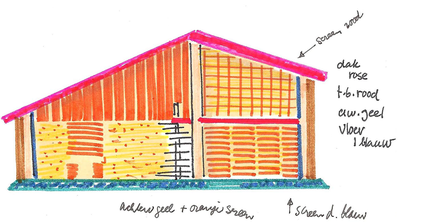 screen rood
dak
rose
t.b. rood
a.w. geel
vloer
blauw
achter geel + oranje screen
screen d. blauw